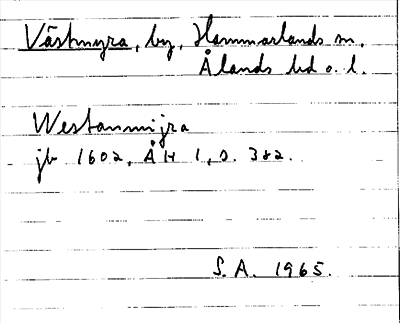 Västmyra, by, Hammarlands sn,
Ålands hd o. l.
Westanmijra
jb 1602, ÅH 1, s. 382.
S. A. 1965.